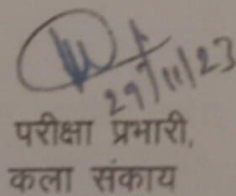 29/11/23
परीक्षा प्रभारी,
कला संकाय